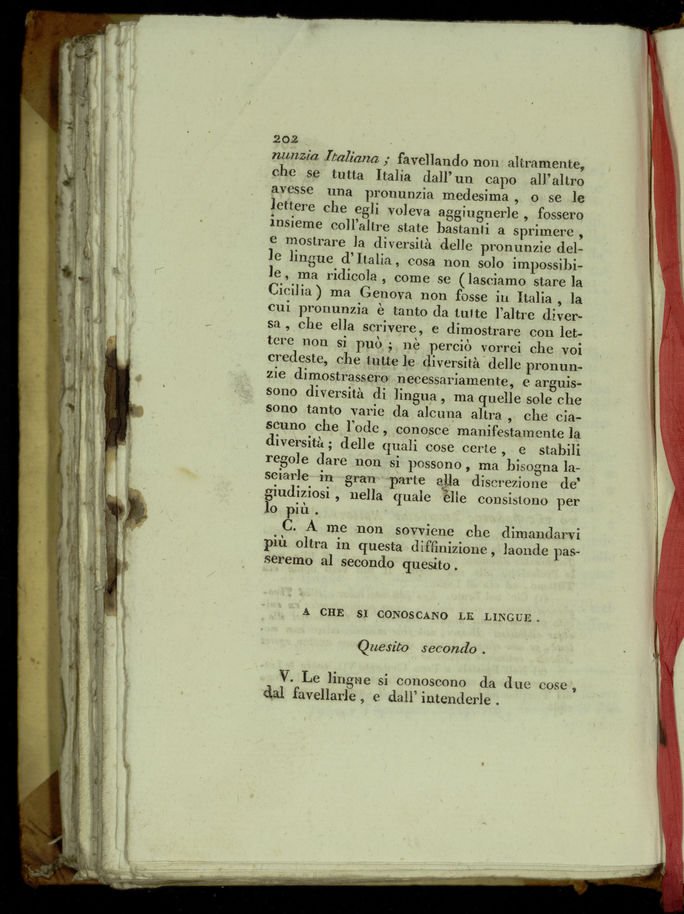 202
nunzia Italiana ; favellando non altramente,
che se tutta Italia dall' un capo all'altro
avesse una pronunzia medesima , o se le
lettere che egli voleva aggiugnerle , fossero
insieme coll'altre state bastanti a sprimere ,
e mostrare la diversità delle pronunzie del-
le lingue d'Italia, cosa non solo impossibi-
le, ma ridicola , come se ( lasciamo stare la
Cicilia ) ma Genova non fosse in Italia , la
cui pronunzia è tanto da tutte l'altre diver-
sa , che ella scrivere, e dimostrare con let-
tere non si può ; nè perciò vorrei che voi
credeste, che tutte le diversità delle pronun-
zie dimostrassero necessariamente, e arguis-
sono diversità di lingua , ma quelle sole che
sono tanto varie da alcuna altra , che cia-
scuno che l'ode , conosce manifestamente la
diversità ; delle quali cose certe , e stabili
regole dare non si possono , ma bisogna la-
sciarle in gran parte alla discrezione de'
giudiziosi , nella quale elle consistono per
lo più .
C. A me non sovviene che dimandarvi
più oltra in questa diffinizione , laonde pas-
seremo al secondo quesito .
A CHE SI CONOSCANO LE LINGUE .
Quesito secondo .
V. Le lingue si conoscono da due cose ,
dal favellarle , e dall' intenderle .